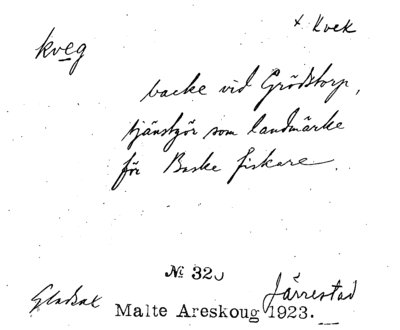 × Kvek
kveg
backe vid Grödstorp,
tjänstgör som landmärke
för Baske fiskare.
№ 320
Gladsax Järrestad
Malte Areskoug 1923.